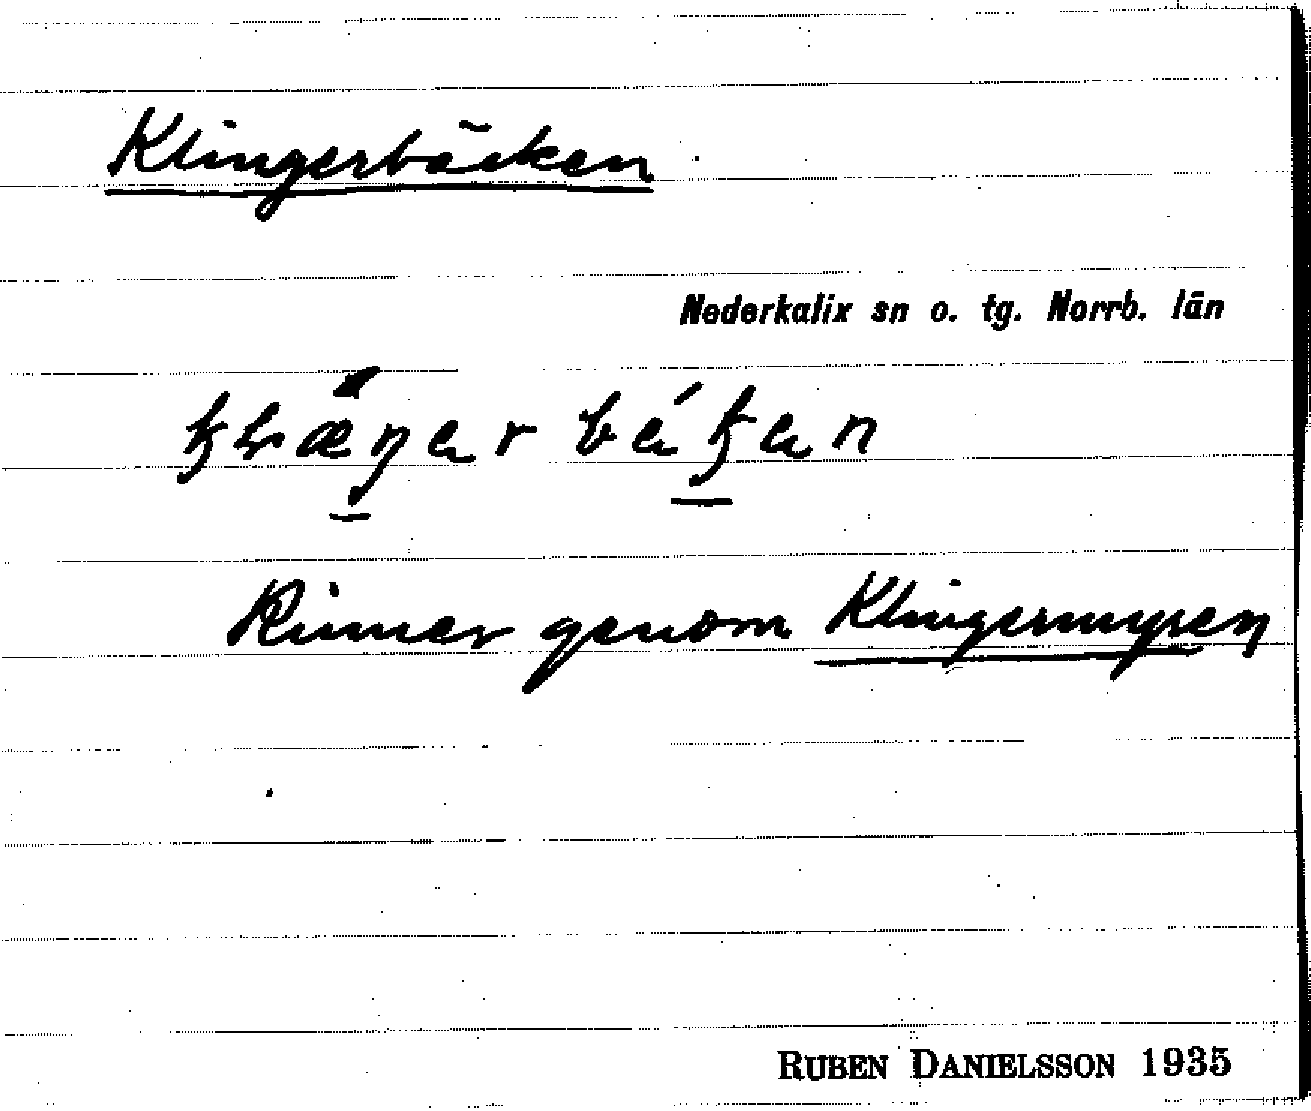 Klingerbäcken
Nederkalix sn o. tg. Norrb. län
Rinner genom Klingermyren
RUBEN DANIELSSON 1935